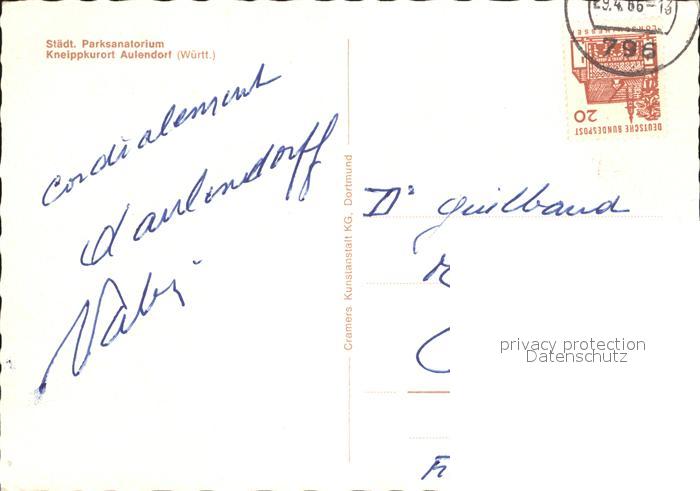 Städt. Parksanatorium
Kneippkurort Aulendorf (Württ.)
cordialement
d'aulendorff
Cramers Kunstanstalt KG, Dortmund
29.4.66-13
796
20
DEUTSCHE BUNDESPOST
Dr Guilbaud
privacy protection
Datenschutz